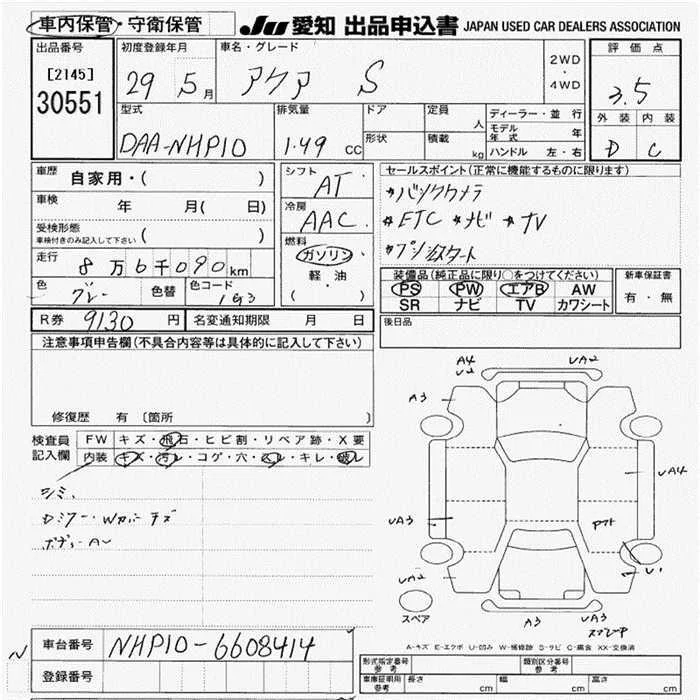 車内保管・守衛保管 JU 愛知 出品申込書 JAPAN USED CAR DEALERS ASSOCIATION
出品番号 初度登録年月 車名・グレード 評価点
[2145] 29 5月 アクア S 2WD・4WD 3.5
30551
型式 排気量 ドア 定員 人 ディーラー・並行 外装 内装
DAA-NHP10 1.49 CC 形状 積載 kg モデル年式 年 D C
ハンドル 左・右
車歴 自家用・( ) シフト AT セールスポイント(正常に機能するものに限ります)
車検 年 月( 日) 冷房 AAC *バックカメラ
受検形態 ( ) *ETC *ナビ *TV
車検付きのみ記入して下さい 燃料 ガソリン *プッシュスタート
走行 8万6千090km 軽・油 装備品(純正品に限り○をつけてください) 新車保証書
色 グレー 色替 色コード 1G3 ( ・ ) PS PW エアB AW 有・無
SR ナビ TV カワシート
R券 9130 円 名変通知期限 月 日 後日品
注意事項申告欄(不具合内容等は具体的に記入して下さい)
A4 U2 UA2
A3
修復歴 有 〔箇所 〕
検査員記入欄 FW キズ・飛石・ヒビ割・リペア跡・X要
内装 キズ・汚レ・コゲ・穴・スレ・キレ・破レ
UA4
シミ、
Dミラー・Wカバーキズ UA3
ボディーAU
UA2 U1
スペア
A3 UA3
A-キズ E-エクボ U-凹み W-補修跡 S-サビ C-腐食 XX-交換済
車台番号 NHP10-6608414
登録番号 形式指定番号 参考 類別区分番号 参考
車庫証明用 参考 長さ cm 幅 cm 高さ cm